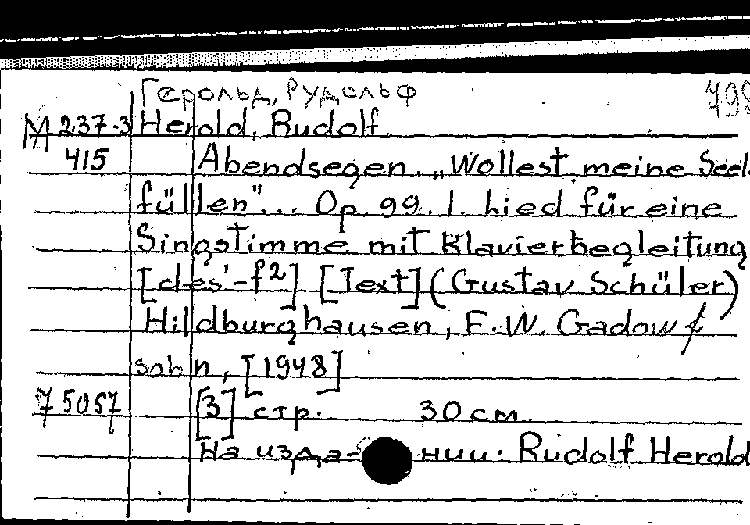 Герольд, Рудольф 499
М 237-3 Herold, Rudolf
415 Abendsegen. „Wollest meine Seel
füllen"... Op. 99. 1. Lied für eine
Singstimme mit Klavierbegleitung
[des'-f2] [Text] (Gustav Schüler)
Hildburghausen, F. W. Gadow &
sohn, [1948]
75057 [3] стр. 30 см
На изда- нии: Rudolf Herold